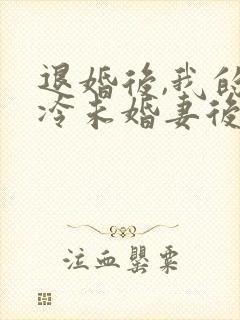 退婚後,我的
冷未婚妻後
泣血罌粟